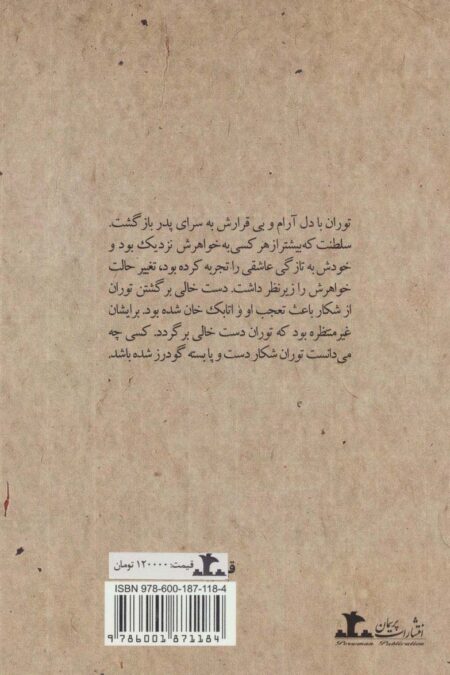 توران با دل آرام و بی قرارش به سرای پدر بازگشت.
سلطنت که بیشتر از هر کسی به خواهرش نزدیک بود و
خودش به تازگی عاشقی را تجربه کرده بود، تغییر حالت
خواهرش را زیرنظر داشت. دست خالی برگشتن توران
از شکار باعث تعجب او و اتابک خان شده بود. برایشان
غیرمنتظره بود که توران دست خالی برگردد. کسی چه
می‌دانست توران شکار دست و پا بسته گودرز شده باشد.
قیمت: ۱۲۰۰۰۰ تومان
ISBN 978-600-187-118-4
9 786001 871184
انتشارات پریمان
Publication